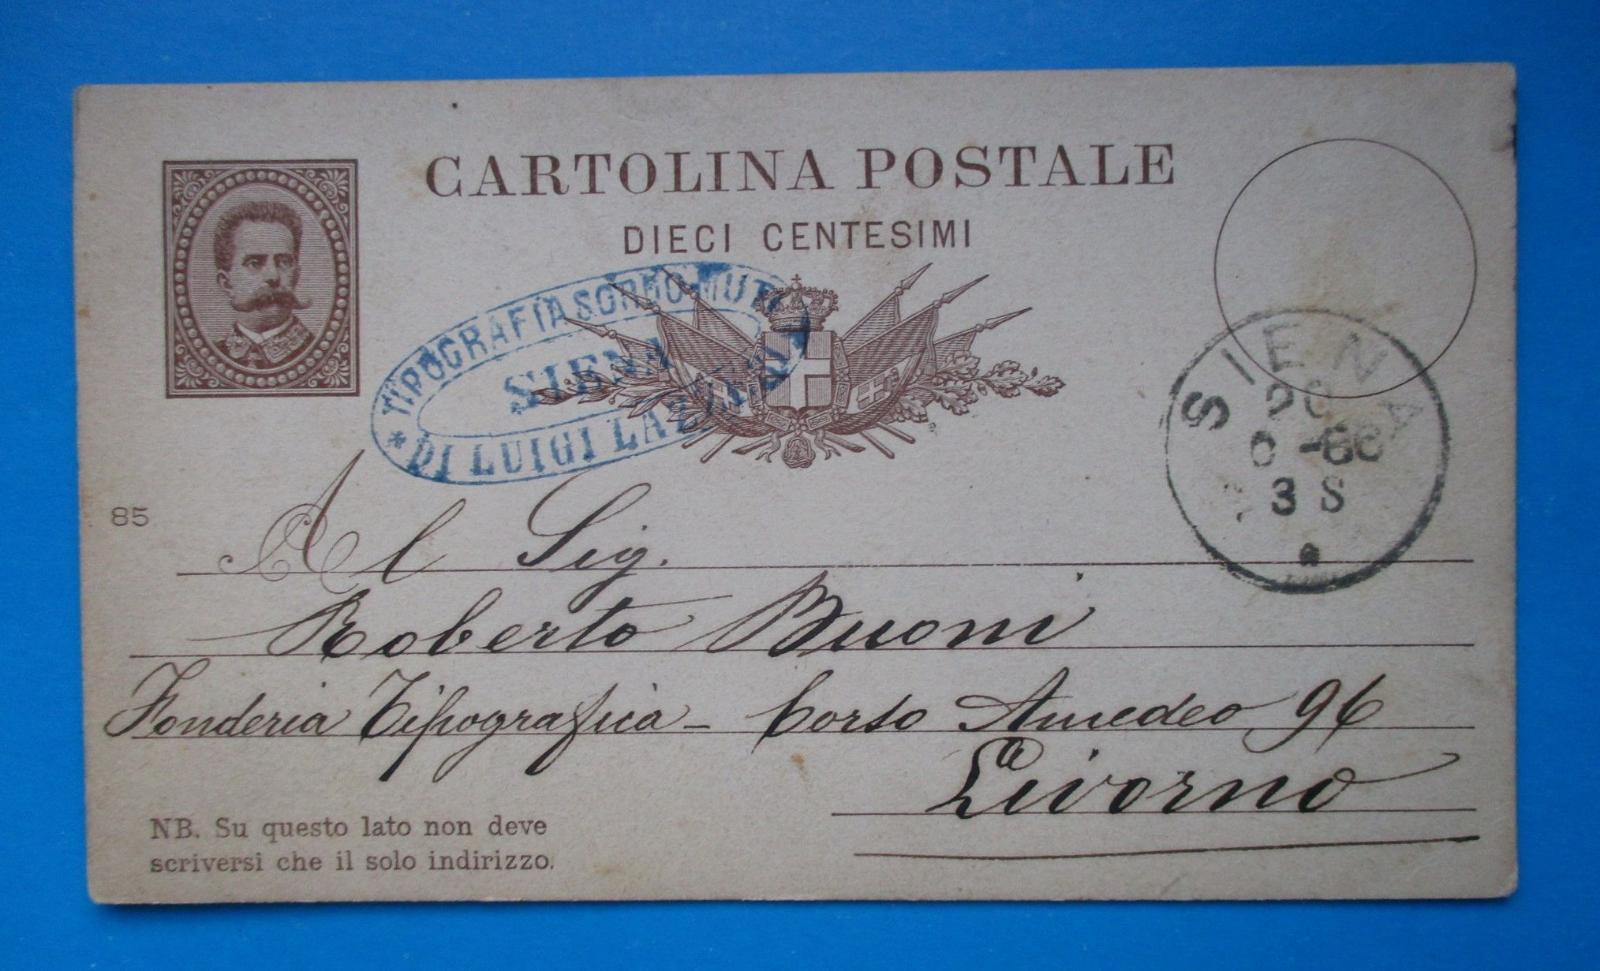 CARTOLINA POSTALE
DIECI CENTESIMI
TIPOGRAFIA SORDO-MUTI
SIENA
* DI LUIGI LAZZERI
SIENA
3 S
85
Al Sig.
Roberto Buoni
Fonderia Tipografica - Corso Amedeo 96
Livorno
NB. Su questo lato non deve
scriversi che il solo indirizzo.